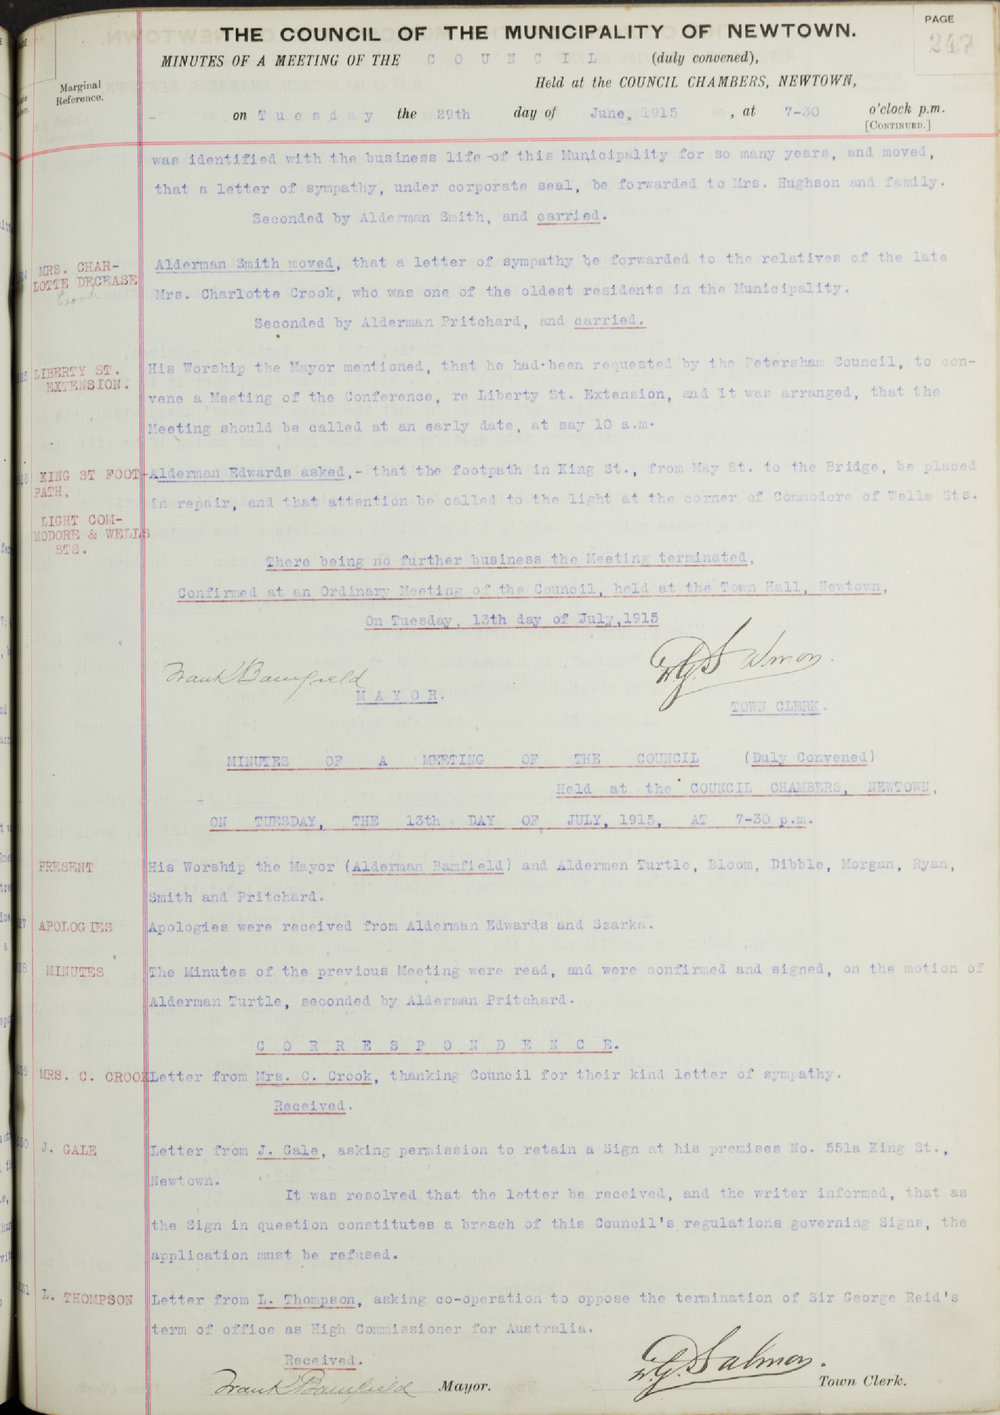 THE COUNCIL OF THE MUNICIPALITY OF NEWTOWN.
PAGE
247
MINUTES OF A MEETING OF THE C O U N C I L (duly convened),
Held at the COUNCIL CHAMBERS, NEWTOWN,
Marginal
Reference.
on T u e s d a y the 29th day of June, 1915 , at 7-30 o'clock p.m.
[CONTINUED.]
was identified with the business life of this Municipality for so many years, and moved,
that a letter of sympathy, under corporate seal, be forwarded to Mrs. Hughson and family.
Seconded by Alderman Smith, and carried.
MRS. CHAR-
LOTTE DECEASE
Crook
Alderman Smith moved, that a letter of sympathy be forwarded to the relatives of the late
Mrs. Charlotte Crook, who was one of the oldest residents in the Municipality.
Seconded by Alderman Pritchard, and carried.
LIBERTY ST.
EXTENSION.
His Worship the Mayor mentioned, that he had been requested by the Petersham Council, to con-
vene a Meeting of the Conference, re Liberty St. Extension, and it was arranged, that the
Meeting should be called at an early date, at say 10 a.m.
KING ST FOOT-
PATH,
Alderman Edwards asked,- that the footpath in King St., from May St. to the Bridge, be placed
in repair, and that attention be called to the light at the corner of Commodore of Wells Sts.
LIGHT COM-
MODORE & WELLS
STS.
There being no further business the Meeting terminated,
Confirmed at an Ordinary Meeting of the Council, held at the Town Hall, Newtown,
On Tuesday, 13th day of July,1915
Frank Bamfield
M A Y O R.
W.G. Salmon.
TOWN CLERK.
MINUTES OF A MEETING OF THE COUNCIL (Duly Convened)
Held at the COUNCIL CHAMBERS, NEWTOWN,
ON TUESDAY, THE 13th DAY OF JULY, 1915, AT 7-30 p.m.
PRESENT
His Worship the Mayor (Alderman Bamfield) and Aldermen Turtle, Bloom, Dibble, Morgan, Ryan,
Smith and Pritchard.
APOLOGIES
Apologies were received from Alderman Edwards and Szarka.
MINUTES
The Minutes of the previous Meeting were read, and were confirmed and signed, on the motion of
Alderman Turtle, seconded by Alderman Pritchard.
C O R R E S P O N D E N C E.
MRS. C. CROOK
Letter from Mrs. C. Crook, thanking Council for their kind letter of sympathy.
Received.
J. GALE
Letter from J. Gale, asking permission to retain a Sign at his premises No. 551a King St.,
Newtown.
It was resolved that the letter be received, and the writer informed, that as
the Sign in question constitutes a breach of this Council's regulations governing Signs, the
application must be refused.
L. THOMPSON
Letter from L. Thompson, asking co-operation to oppose the termination of Sir George Reid's
term of office as High Commissioner for Australia.
Received.
Frank Bamfield Mayor.
W.G. Salmon. Town Clerk.